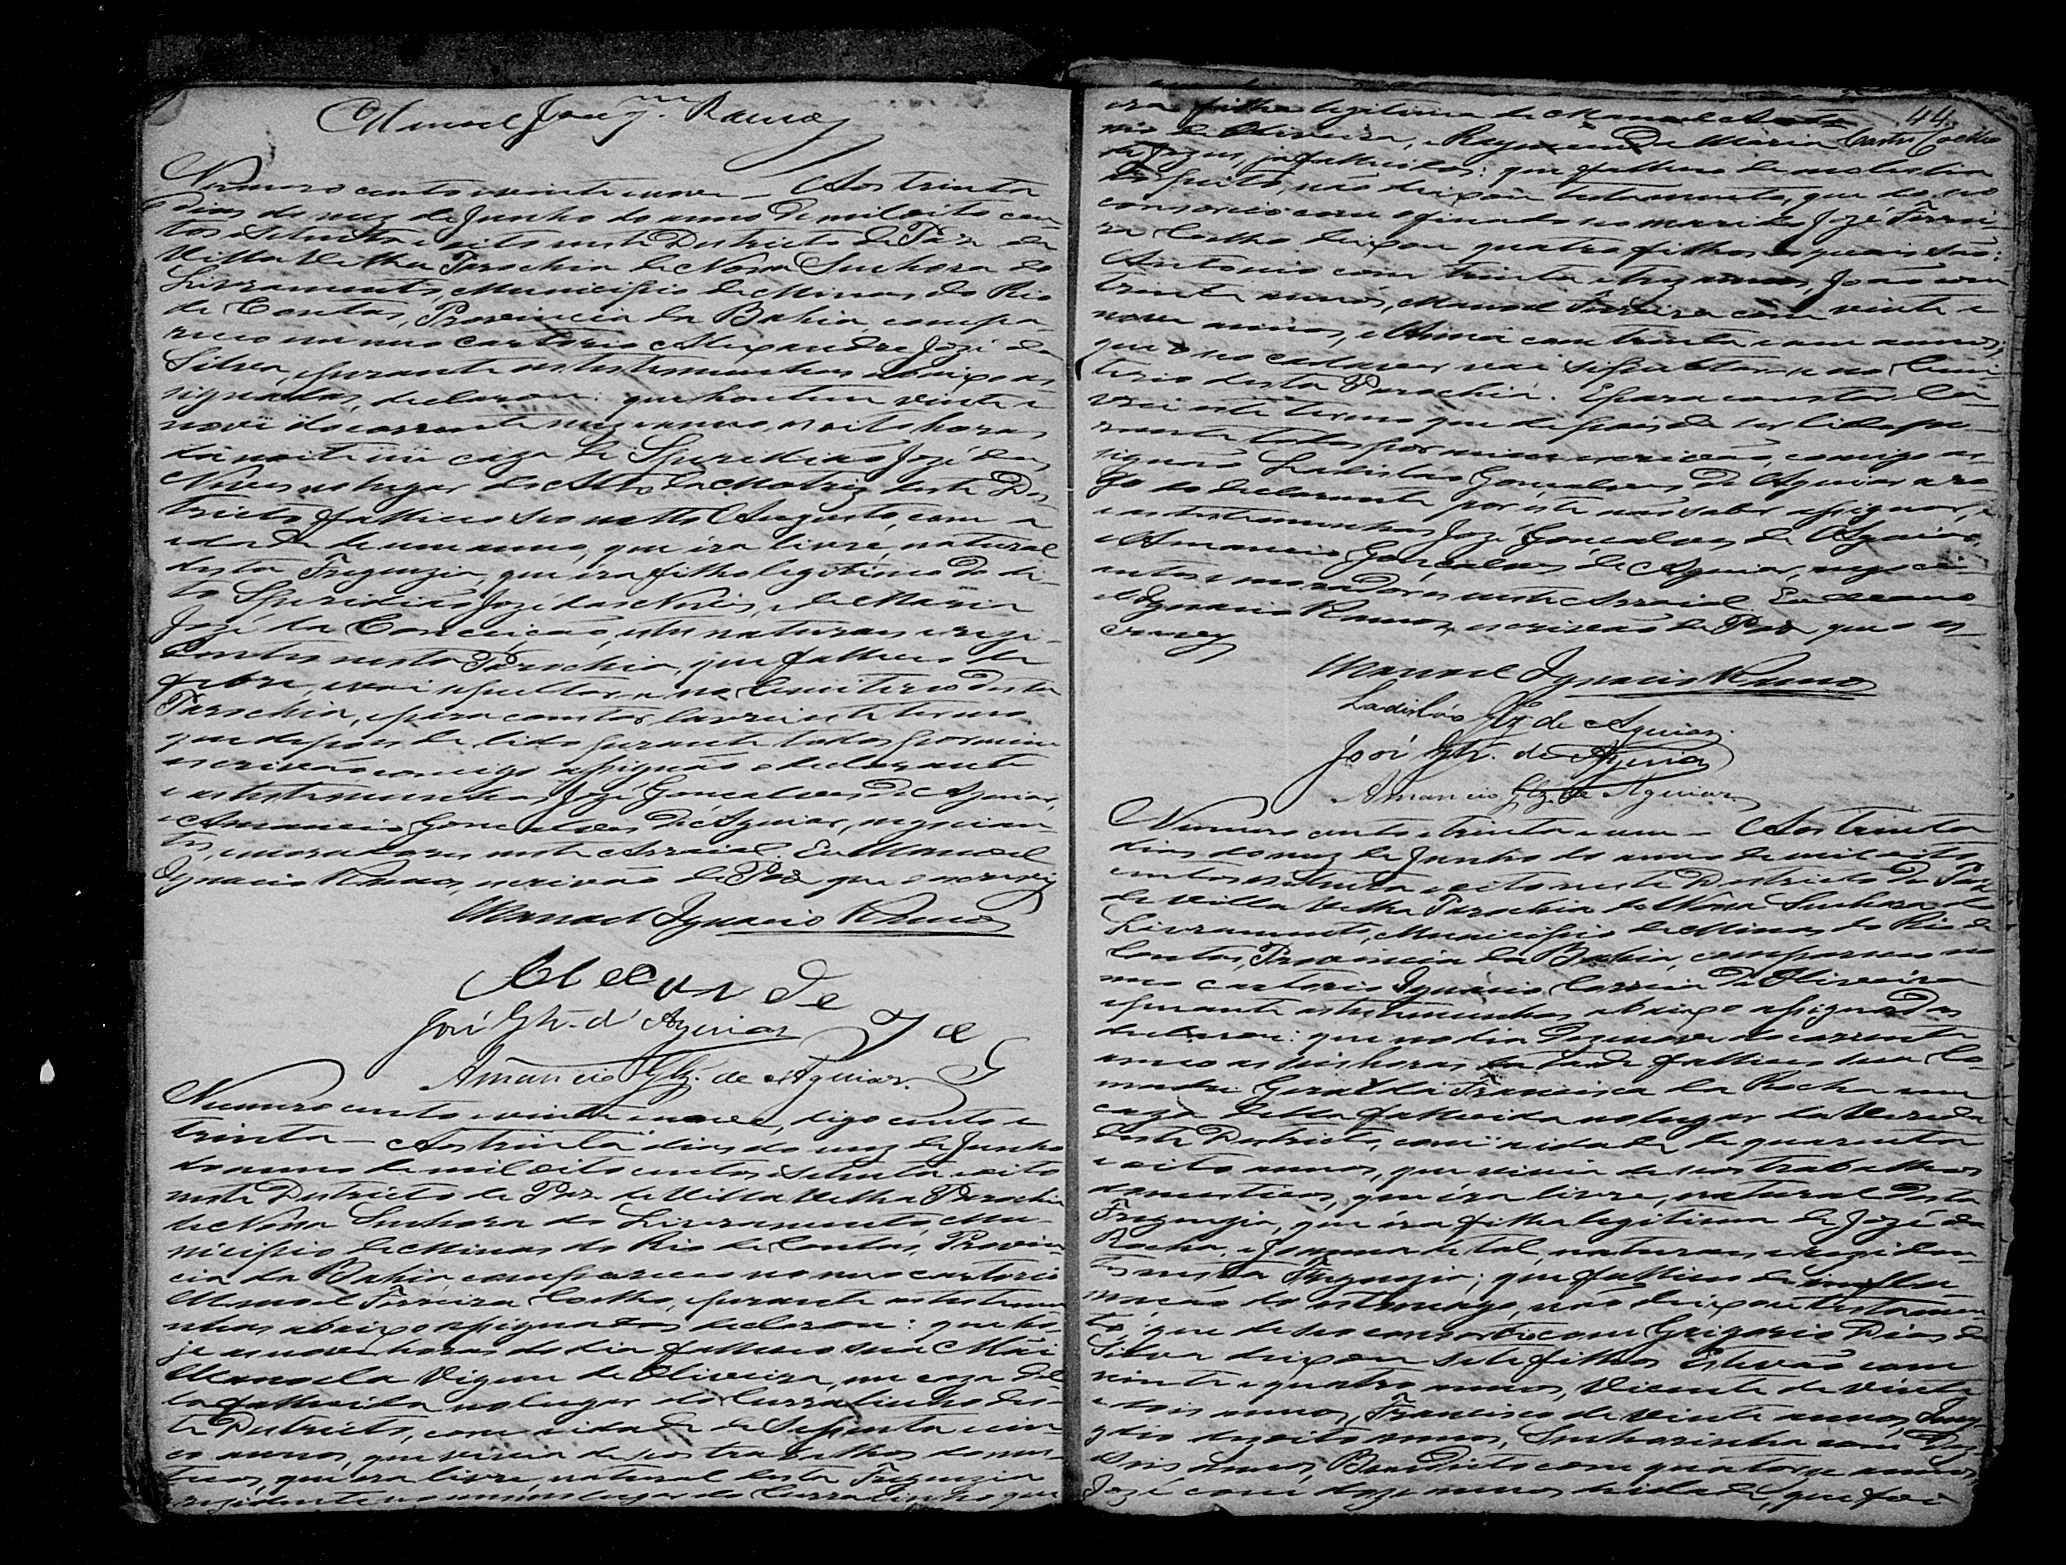 Manoel Joaqm. Ramos
Numero cento e vinte e nove – Aos trinta
dias do mez de Junho do anno de mil oito cen
tos e setenta e oito neste Districto de Paz da
Villa Velha Parochia de Nossa Senhora do
Livramento, Municipio de Minas do Rio
de Contas, Provincia da Bahia, compa-
receo no meo cartorio Alexandre José da
Silva, perante as testemunhas abaixo as
signadas, declarou: que hontem vinte e
nove do corrente mez e anno, as oito horas
da noite em caza de Speridião José das
Neves no lugar do Alto da Matriz deste Dis
tricto falleceo seo netto Augusto, com a
idade de um anno, que éra livre, natural
desta Freguezia, que éra filho legitimo do di-
to Speridião José das Neves, e de Maria
José da Conceição, estes naturaes e rezi-
dentes nesta Parochia, que falleceo de
febre, e vai sepultar-se no Cemiterio desta
Parochia, e para constar, lavrei este termo
que depois de lido perante todos por mim
escrivão comigo assignão o declarante
e as testemunhas José Gonçalves d'Aguiar,
e Amancio Gonçalves d'Aguiar, negocian-
tes, e moradores neste Arraial. Eu Manoel
Ignacio Ramos, escrivão de Paz que o escrevy
Manoel Ignacio Ramos
José Glz. d'Aguiar
Amancio Glz. de Aguiar.
Numero cento e vinte e nove, digo cento e
trinta – Aos trinta dias do mez de Junho
do anno de mil oito centos e setenta e oito
neste Districto de Paz de Villa Velha Parochia
de Nossa Senhora do Livramento, Mu-
nicipio de Minas do Rio de Contas, Provin
cia da Bahia compareceo no meo cartorio
Manoel Ferreira Coelho, perante as testemu
nhas abaixo assignadas declarou: que ho-
je as nove horas do dia falleceo sua Mãi
Manoela de Oliveira, em caza del
la fallecida no lugar do Curralinho des
te Districto, com idade de Sessenta e cin-
co annos, que vivia de seos trabalhos domes
ticos, que era livre, natural desta Freguezia
rezidente no mesmo lugar do Curralinho que
44
era filha legitima de Manoel
de Oliveira, e Raymunda Maria
de Jezus, já fallecidos: que falleceo de molestia
do peito, não deixou testamento, que do seo
consorcio com o finado seo marido José Ferrei-
ra Coelho deixou quatro filhos os quais são:
Antonio com trinta e tres annos, João com
trinta annos, Manoel Ferreira com vinte e
nove annos, e Anna com trinta e um annos,
que o seo cadaver vai sepultar-se no Cemi
terio desta Parochia. E para constar, la-
vrei este termo que depois de ser lido pe-
rante todos por mim escrivão, comigo as-
signão Ladislào Gonçalves d'Aguiar a ro-
go do declarante por este não saber assignar, e
as testemunhas José Gonçalves de Aguiar,
e Amancio Gonçalves de Aguiar, negoci-
antes e moradores neste Arraial. Eu Mano-
el Ignacio Ramos, escrivão de Paz que o es-
crevy
Manoel Ignacio Ramos
Ladislào Glz de Aguiar.
José Glz. de Aguiar
Amancio Glz. de Aguiar
Numero cento e trinta e um – Aos trinta
dias do mez de Junho do anno de mil oito
centos e setenta e oito neste Districto de Paz
de Villa Velha Parochia de Nossa Senhora do
Livramento, Municipio de Minas do Rio de
Contas, Provincia da Bahia, compareceo no
meo cartorio Ignacio Correia de Oliveira
e perante as testemunhas abaixo assignadas
declarou: que no dia dezenove do corrente
anno as seis horas da tarde falleceo sua Co-
madre Geralda Francisca da Rocha em
caza della fallecida no lugar da Vereda
deste Districto, com a idade de quarenta
e oito annos, que vivia de seos trabalhos
domesticos, que éra livre, natural desta
Freguezia, que éra filha legitima de José da
Rocha, e Joanna de tal, naturaes e rezidan-
tes nesta Freguezia; que falleceo de infla-
mação do estomago, não deixou testamen
to, que de seo consorcio com Grigorio Dias da
Silva deixou sete filhos Estevão com
vinte e quatro annos, Vicente de vinte
e dois annos, Francisco de vinte annos,
dezoito annos, Senhorinha com dez
seis annos, Benedicto com quatorze annos
José com doze annos de idade, que foi